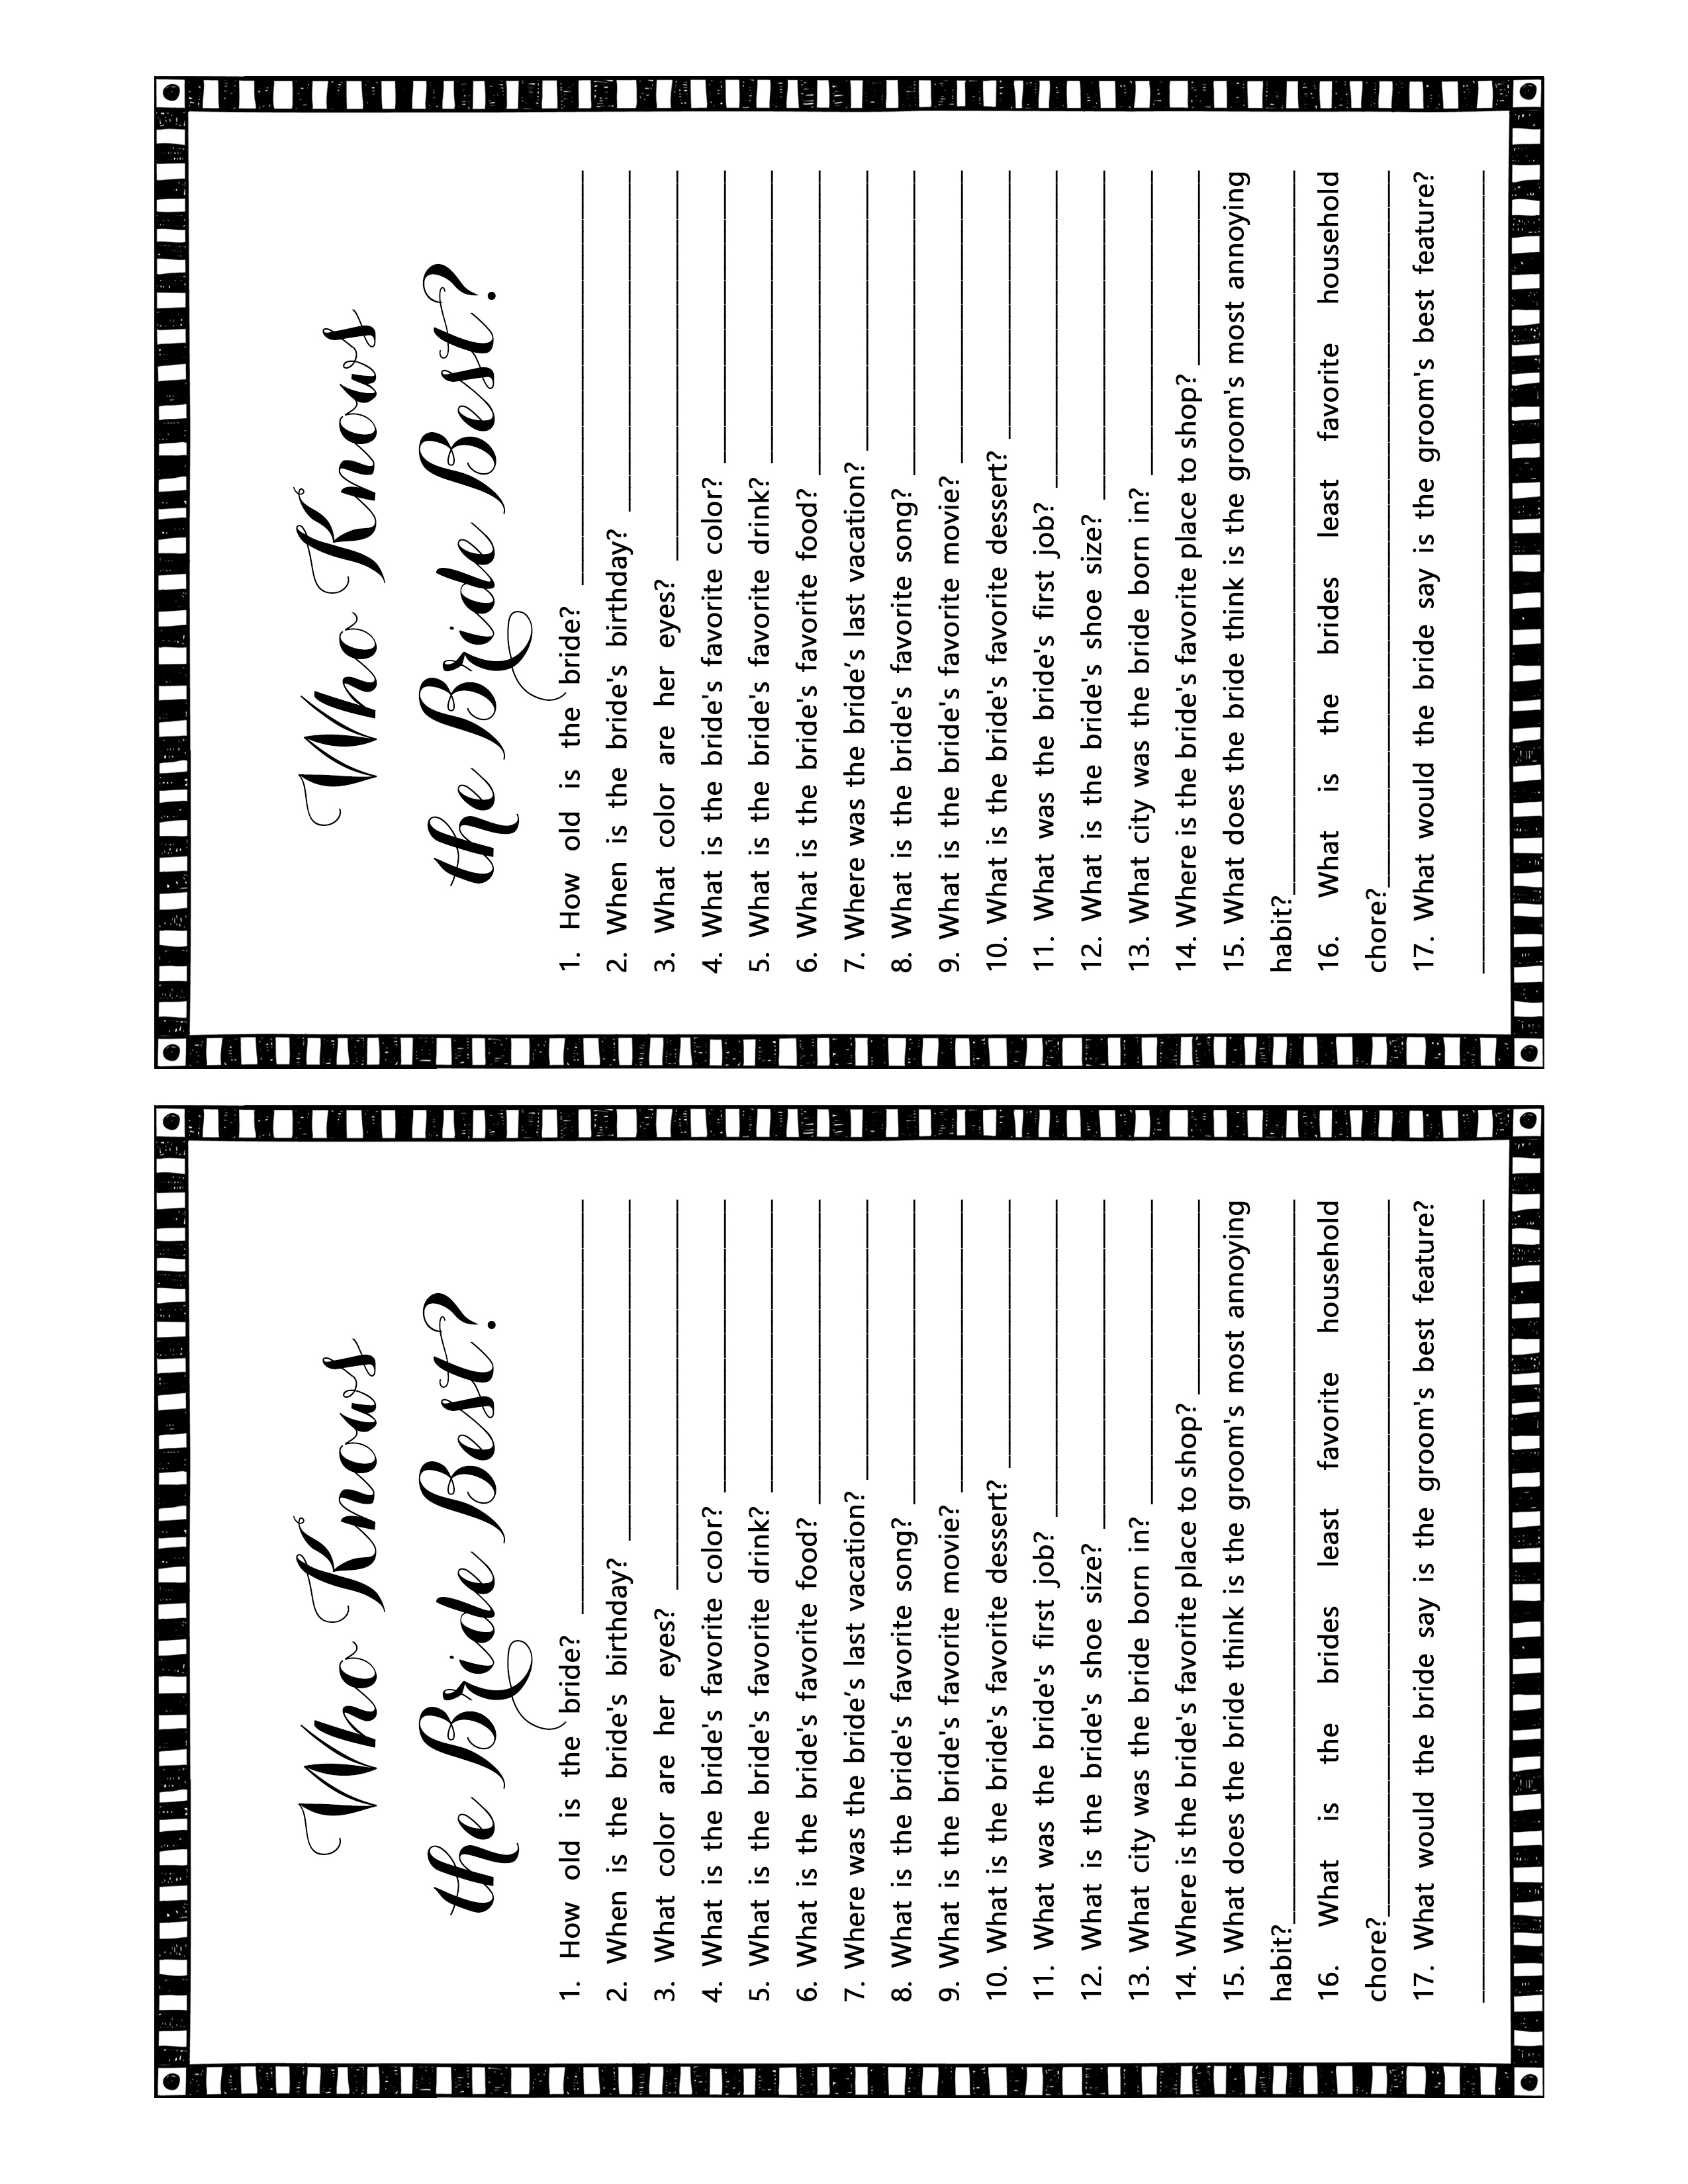 Who Knows
the Bride Best?
1. How old is the bride? ____________________
2. When is the bride's birthday? ____________________
3. What color are her eyes? ____________________
4. What is the bride's favorite color? ____________________
5. What is the bride's favorite drink? ____________________
6. What is the bride's favorite food? ____________________
7. Where was the bride's last vacation? ____________________
8. What is the bride's favorite song? ____________________
9. What is the bride's favorite movie? ____________________
10. What is the bride's favorite dessert? ____________________
11. What was the bride's first job? ____________________
12. What is the bride's shoe size? ____________________
13. What city was the bride born in? ____________________
14. Where is the bride's favorite place to shop? ____________________
15. What does the bride think is the groom's most annoying
habit?____________________
16. What is the brides least favorite household
chore?____________________
17. What would the bride say is the groom's best feature?
____________________
Who Knows
the Bride Best?
1. How old is the bride? ____________________
2. When is the bride's birthday? ____________________
3. What color are her eyes? ____________________
4. What is the bride's favorite color? ____________________
5. What is the bride's favorite drink? ____________________
6. What is the bride's favorite food? ____________________
7. Where was the bride's last vacation? ____________________
8. What is the bride's favorite song? ____________________
9. What is the bride's favorite movie? ____________________
10. What is the bride's favorite dessert? ____________________
11. What was the bride's first job? ____________________
12. What is the bride's shoe size? ____________________
13. What city was the bride born in? ____________________
14. Where is the bride's favorite place to shop? ____________________
15. What does the bride think is the groom's most annoying
habit?____________________
16. What is the brides least favorite household
chore?____________________
17. What would the bride say is the groom's best feature?
____________________